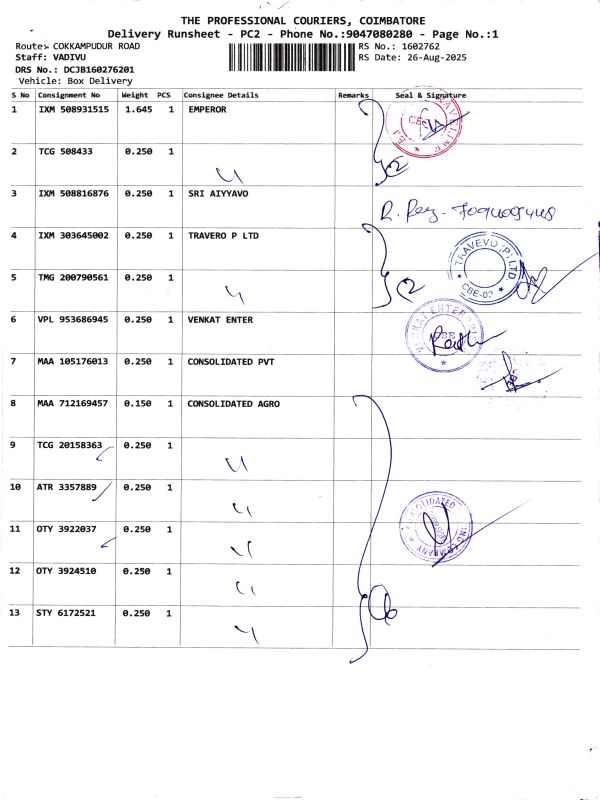 THE PROFESSIONAL COURIERS, COIMBATORE
Delivery Runsheet - PC2 - Phone No.:9047080280 - Page No.:1
Route:- COKKAMPUDUR ROAD
RS No.: 1602762
Staff: VADIVU
RS Date: 26-Aug-2025
DRS No.: DCJB160276201
Vehicle: Box Delivery
S No Consignment No Weight PCS Consignee Details Remarks Seal & Signature
1 IXM 508931515 1.645 1 EMPEROR
2 TCG 508433 0.250 1
3 IXM 508816876 0.250 1 SRI AIYYAVO
4 IXM 303645002 0.250 1 TRAVERO P LTD
TRAVEVO (P) LTD
CBE-02
5 TMG 200790561 0.250 1
6 VPL 953686945 0.250 1 VENKAT ENTER
VENKAT ENTER
7 MAA 105176013 0.250 1 CONSOLIDATED PVT
8 MAA 712169457 0.150 1 CONSOLIDATED AGRO
9 TCG 20158363 0.250 1
10 ATR 3357889 0.250 1
11 OTY 3922037 0.250 1
12 OTY 3924510 0.250 1
13 STY 6172521 0.250 1